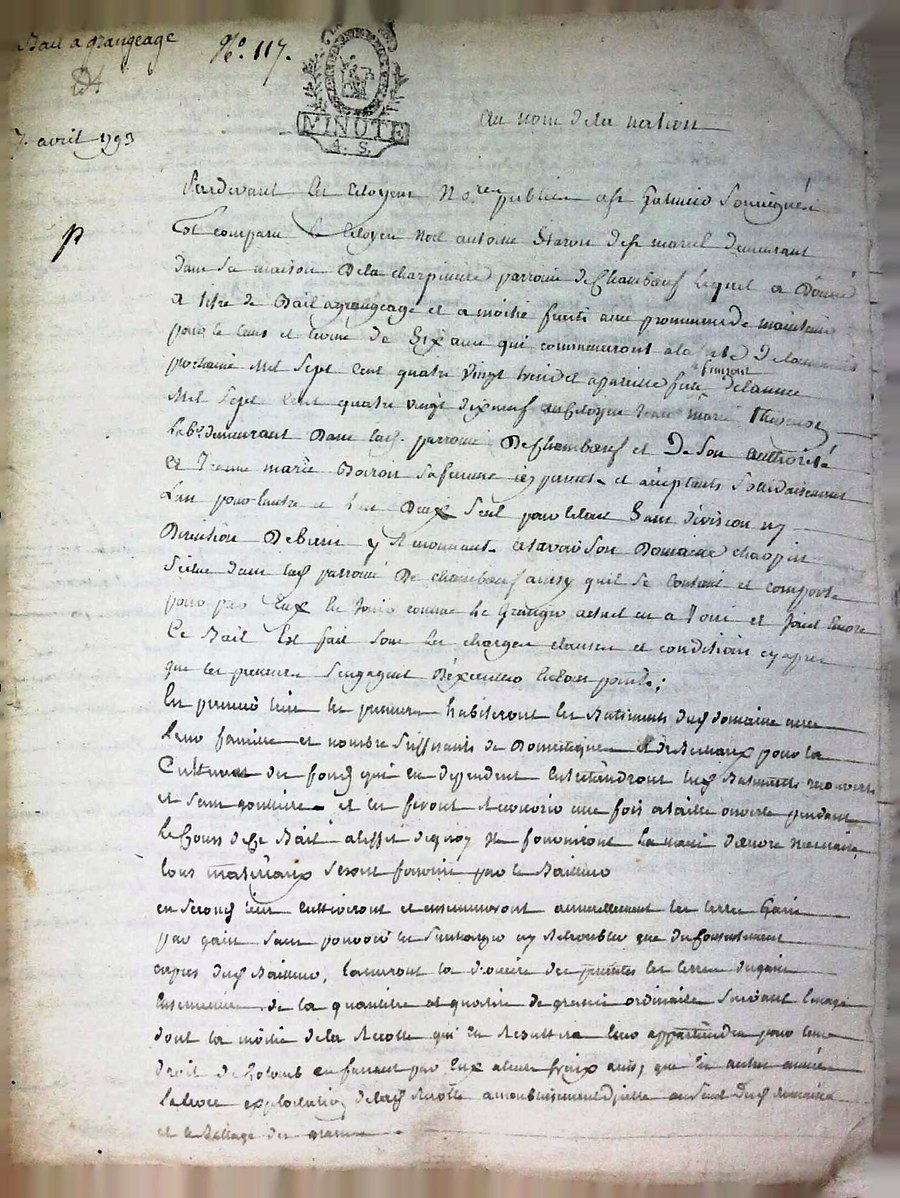 Bail a grangeage
N.º 117.
7. avril 1793
MINUTE
4. S.
au nom de la nation
Pardevant les citoyens No.res publics a St Galmier soussignés
Est comparu le citoyen noel antoine Staron de St marcel demeurant
dans sa maison de la charpiniere parroisse de Chambœuf lequel a donné
a titre de Bail a grangeage et a moitié fruits avec promesse de maintenir
pour le tems et terme de Six ans qui commenceront a la fete de
prochaine Mil Sept Cent quatre vingt treize et a pareille fete de lannee
finiront
Mil Sept Cent quatre vingt dixneuf au Citoyen Jean marie
Labr demeurant dans lad. parroisse De Chambœuf et De Son authorité
Et Jeanne marie Boiron sa femme icy presents et acceptants Solidairement
Lun pour lautre et Les Deux Seul pour le tout Sans division ny
Discution De biens y Renoncant. et savoir Son Domaine
Scitue dans lad parroisse De chambœuf ainsy quil Se Contient et comporte
pour par Eux En Jouir comme Le Granger actuel en a Joui et Jouit Encore
Ce Bail Est fait sous les charges clauses et conditions cy apres
que les preneurs Sengagent Dexecuter
En premier lieu les preneurs habiteront les Batiments dud domaine avec
Leur famille et nombre Suffisants de Domestiques et de Bestiaux pour la
Culture des fonds qui en dependent Entretiendront lesd Batiments recouverts
et Sans gouttieres et les feront Recouvrir une fois a taille ouverte pendant
Le Cours de Ce Bail a leffet de quoy Ils fourniront La main dœuvre necessaire
tous materiaux Seront fournis par le Bailleur
en Second lieu cultiveront et ensemenceront annuellement les terres Gain
par gain Sans pouvoir les Surcharger ny Retroubler que du consentement
expres dud Bailleur, laisseront la derniere des les terres dugain
Ensemencees de la quantité et qualité de graines ordinaires Suivant lusage
dont la moitié de la Recolte qui En Resultera leur appartiendra pour leur
droit de Colons en faisant par Eux a leurs fraix ainsy que les autres années
Lentiere exploitation de lad Recolte au Seuil dud domaine
et le Battage des grains